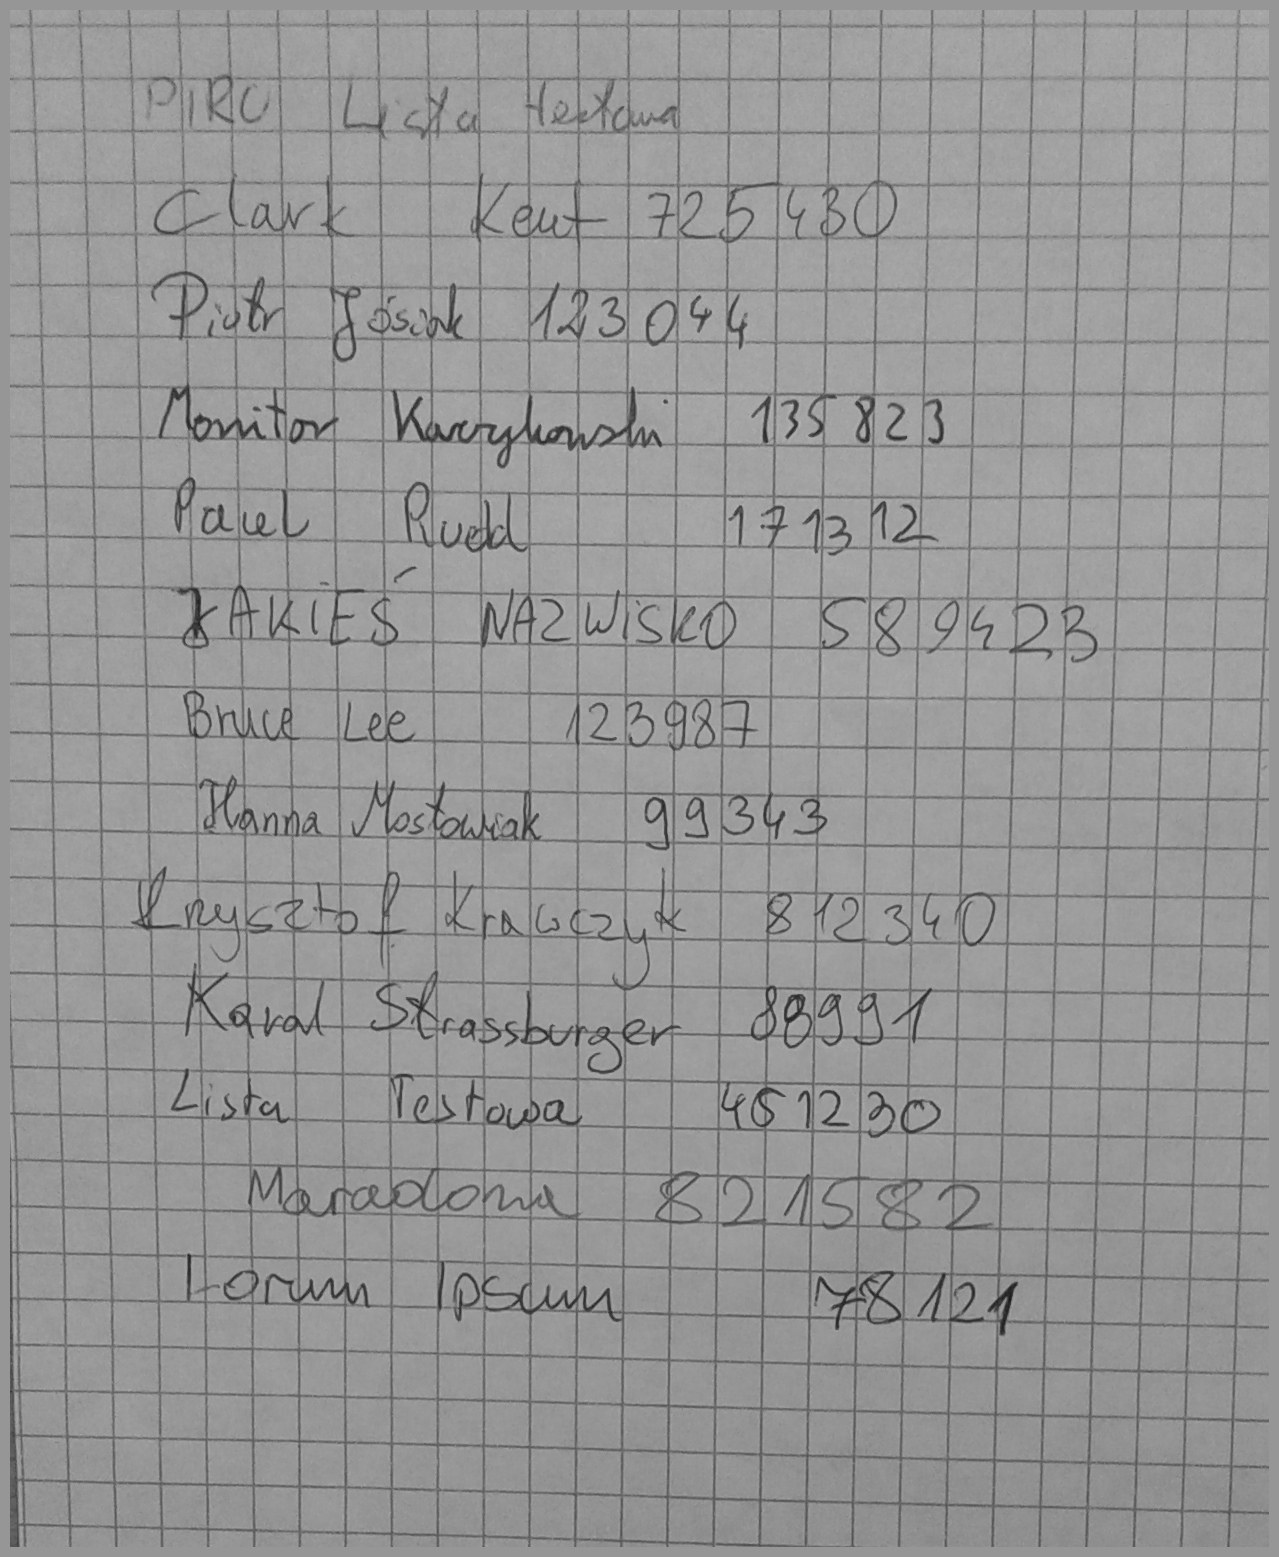 PIRO Lista testowa
Clark Kent 725430
Piotr Jósiak 123044
Monitor Kawrykowski 135823
Paul Rudd 171312
JAKIEŚ NAZWISKO 589423
Bruce Lee 123987
Hanna Mostowiak 99343
Krzysztof Krawczyk 812340
Karol Strassburger 88991
Lista Testowa 451230
Maradona 821582
Lorum Ipsum 78121